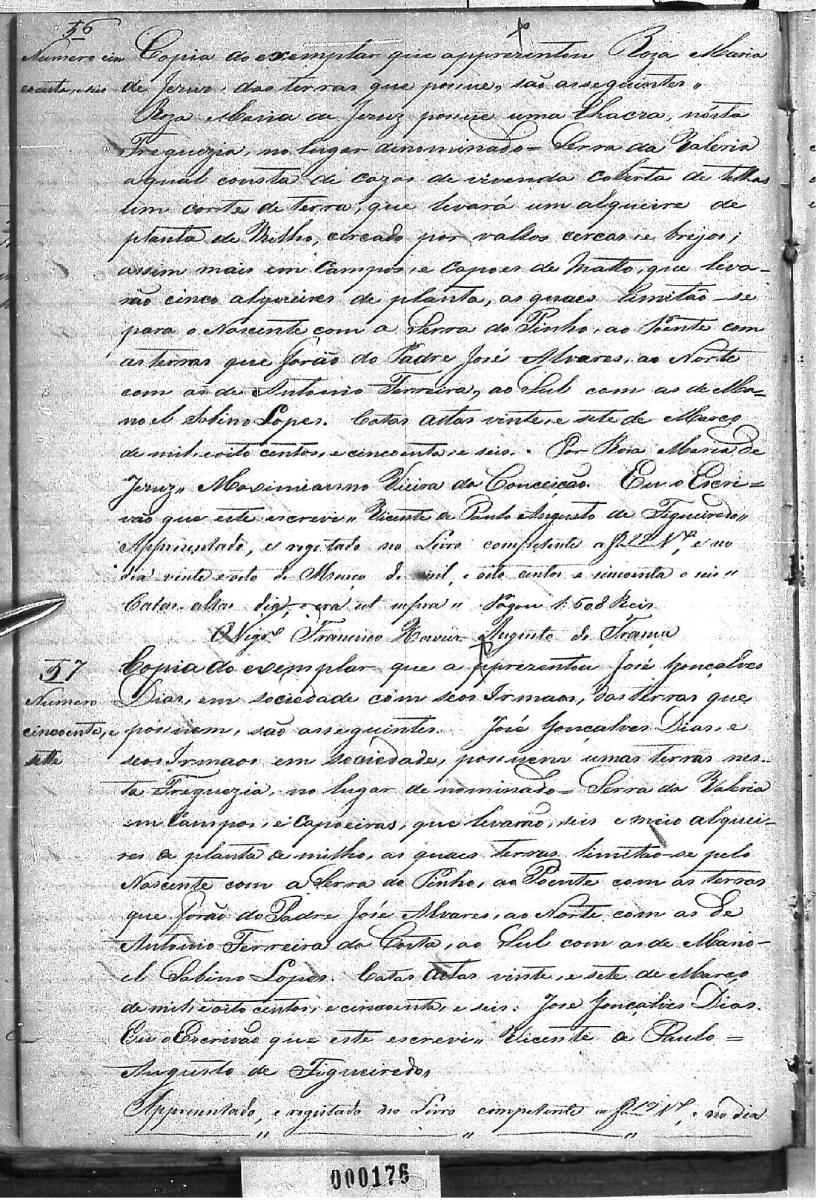 56
Numero cin
coenta, e seis
Copia do exemplar que apprezentou Roza Maria
de Jezuz, das terras que possue, são as seguintes „
Roza Maria de Jezuz possue uma Chacra, nesta
Freguezia, no lugar denominado = Serra da Valeria
a qual consta de cazas de vivenda coberta de telhas
um corte de terra, que levará um alqueire de
planta de Milho, cercado por vallos cercas, e brejos;
assim mais em Campos, e Capoes de Matto, que leva-
rão cinco alqueires de planta, as quaes limitão-se
para o Nascente com a Serra do Pinho, ao Poente com
as terras que forão do Padre José Alvares, ao Norte
com as de Antonio Ferreira, ao Sul com as de Ma-
noel Sabino Lopes. Catas Altas vinte, e sete de Março
de mil, e oito centos, e cincoenta, e seis. Por Roza Maria de
Jezuz „ Maximianno Vieira da Conceição. Eu o Escri-
vão que este escrevi „ Vicente de Paulo Augusto de Figueiredo „
Appresentado, e registado no Livro competente a f 12 Vº, e no
dia vinte e oito de Março de mil, e oito centos e sincoenta e seis „
Catas-altas dia, e era ut supra „ Pagou 1:508 Reis
O Vigrº Francisco Xavier Augusto de França
57
Numero
cincoenta, e
sette
Copia do exemplar que a pprezentou José Gonçalves
Dias, em sociedade com seos Irmaos, das terras que
possuem, são as seguintes. José Gonçalves Dias, e
seos Irmaos em sociedade, possuem umas terras nes-
ta Freguezia, no lugar de nominado = Serra da Valeria
em Campos, e Capoeiras, que levarão, seis e meio alquei-
res de planta de milho, as quaes terras limitão-se pelo
Nascente com a Serra do Pinho, ao Poente com as terras
que forão do Padre José Alvares, ao Norte com as de
Antonio Ferreira da Costa, ao Sul com as de Mano-
el Sabino Lopes. Catas Altas vinte, e sete de Março
de mil, e oito centos, e cincoenta, e seis. José Gonçalves Dias.
Eu o Escrivão que este escrevi „ Vicente de Paulo =
Augusto de Figueiredo,
Appresentado, e registado no Livro competente a f 12 Vº, e no dia
000176